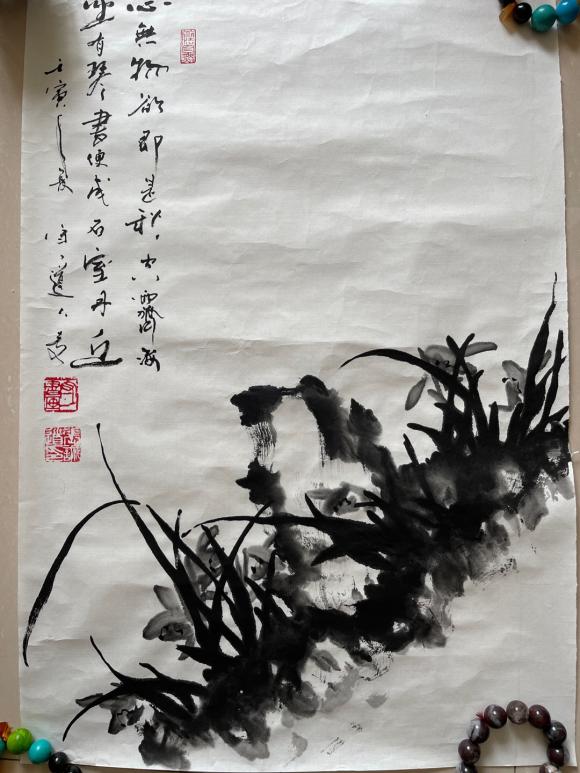 心無物欲即是秋空霽海
坐有琴書便成石室丹丘
壬寅